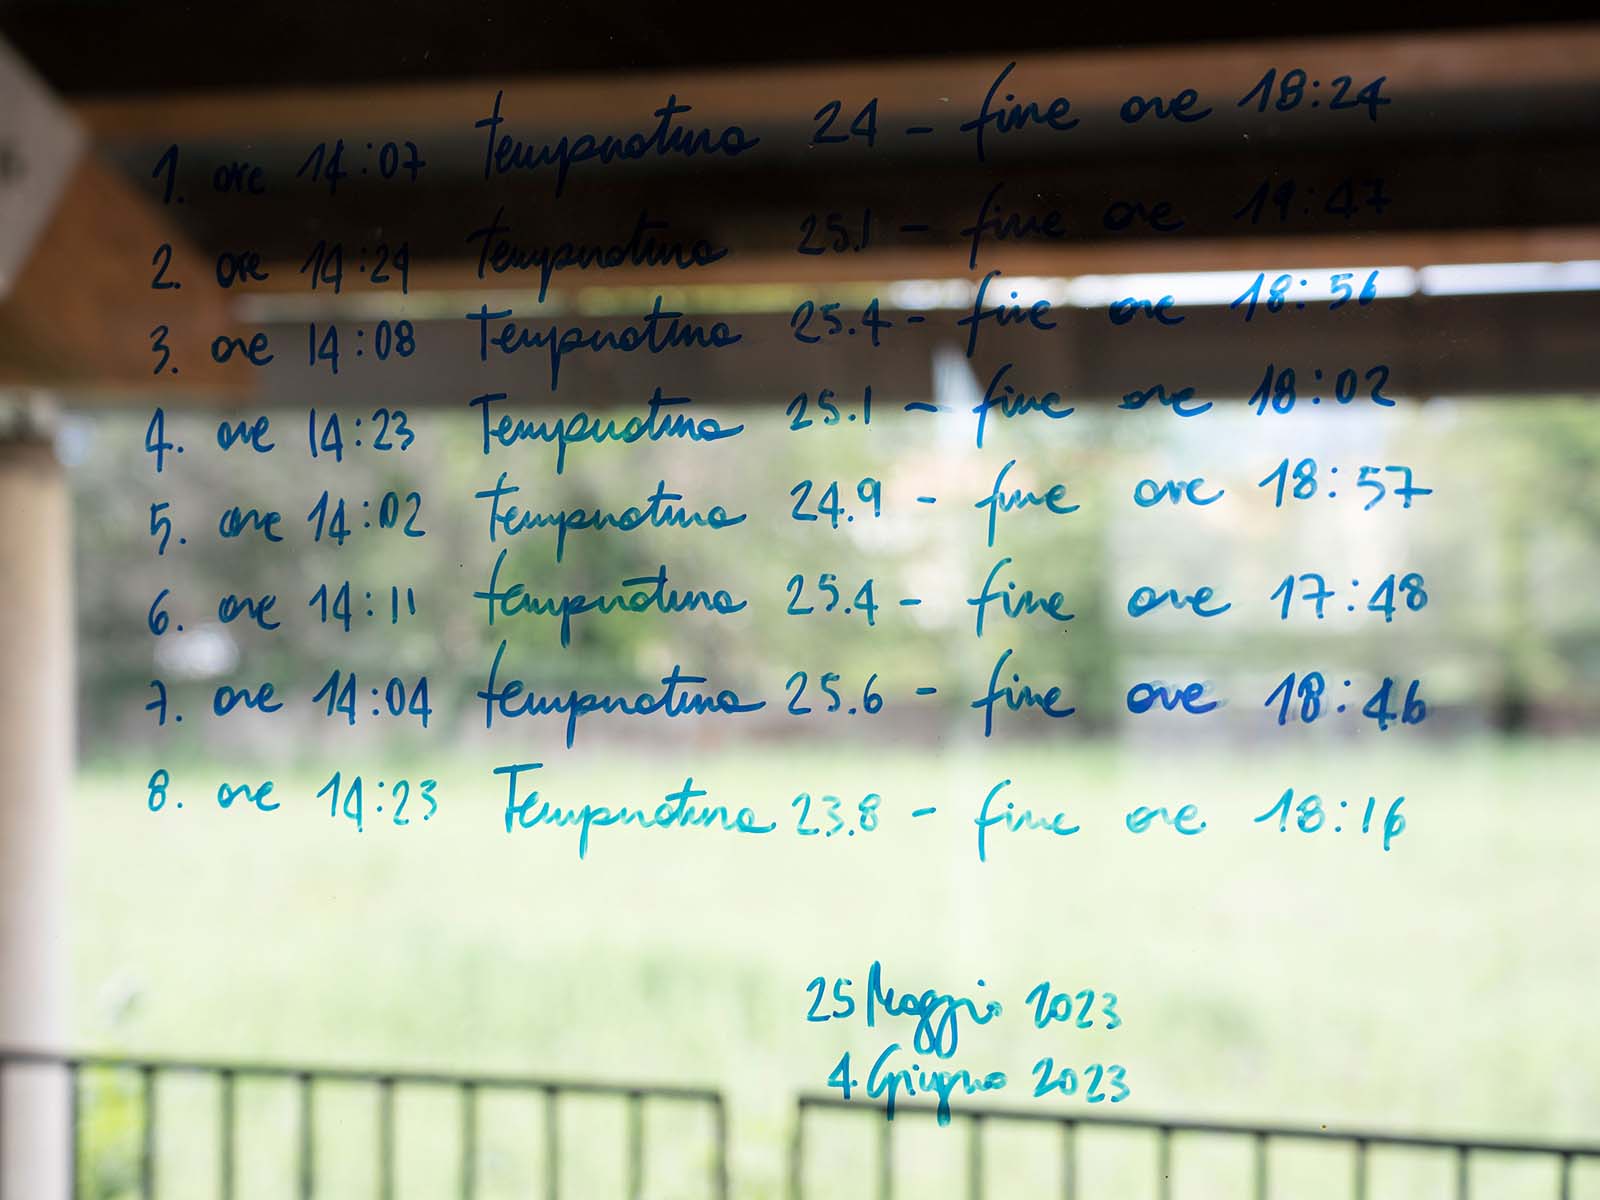 1. ore 14:07 Temperatura 24 - fine ore 18:24
2. ore 14:24 temperatura 25.1 - fine ore 19:47
3. ore 14:08 Temperatura 25.4 - fine ore 18:56
4. ore 14:23 Temperatura 25.1 - fine ore 18:02
5. ore 14:02 Temperatura 24.9 - fine ore 18:57
6. ore 14:11 temperatura 25.4 - fine ore 17:48
7. ore 14:04 temperatura 25.6 - fine ore 18:46
8. ore 14:23 Temperatura 23.8 - fine ore 18:16
25 Maggio 2023
4 Giugno 2023